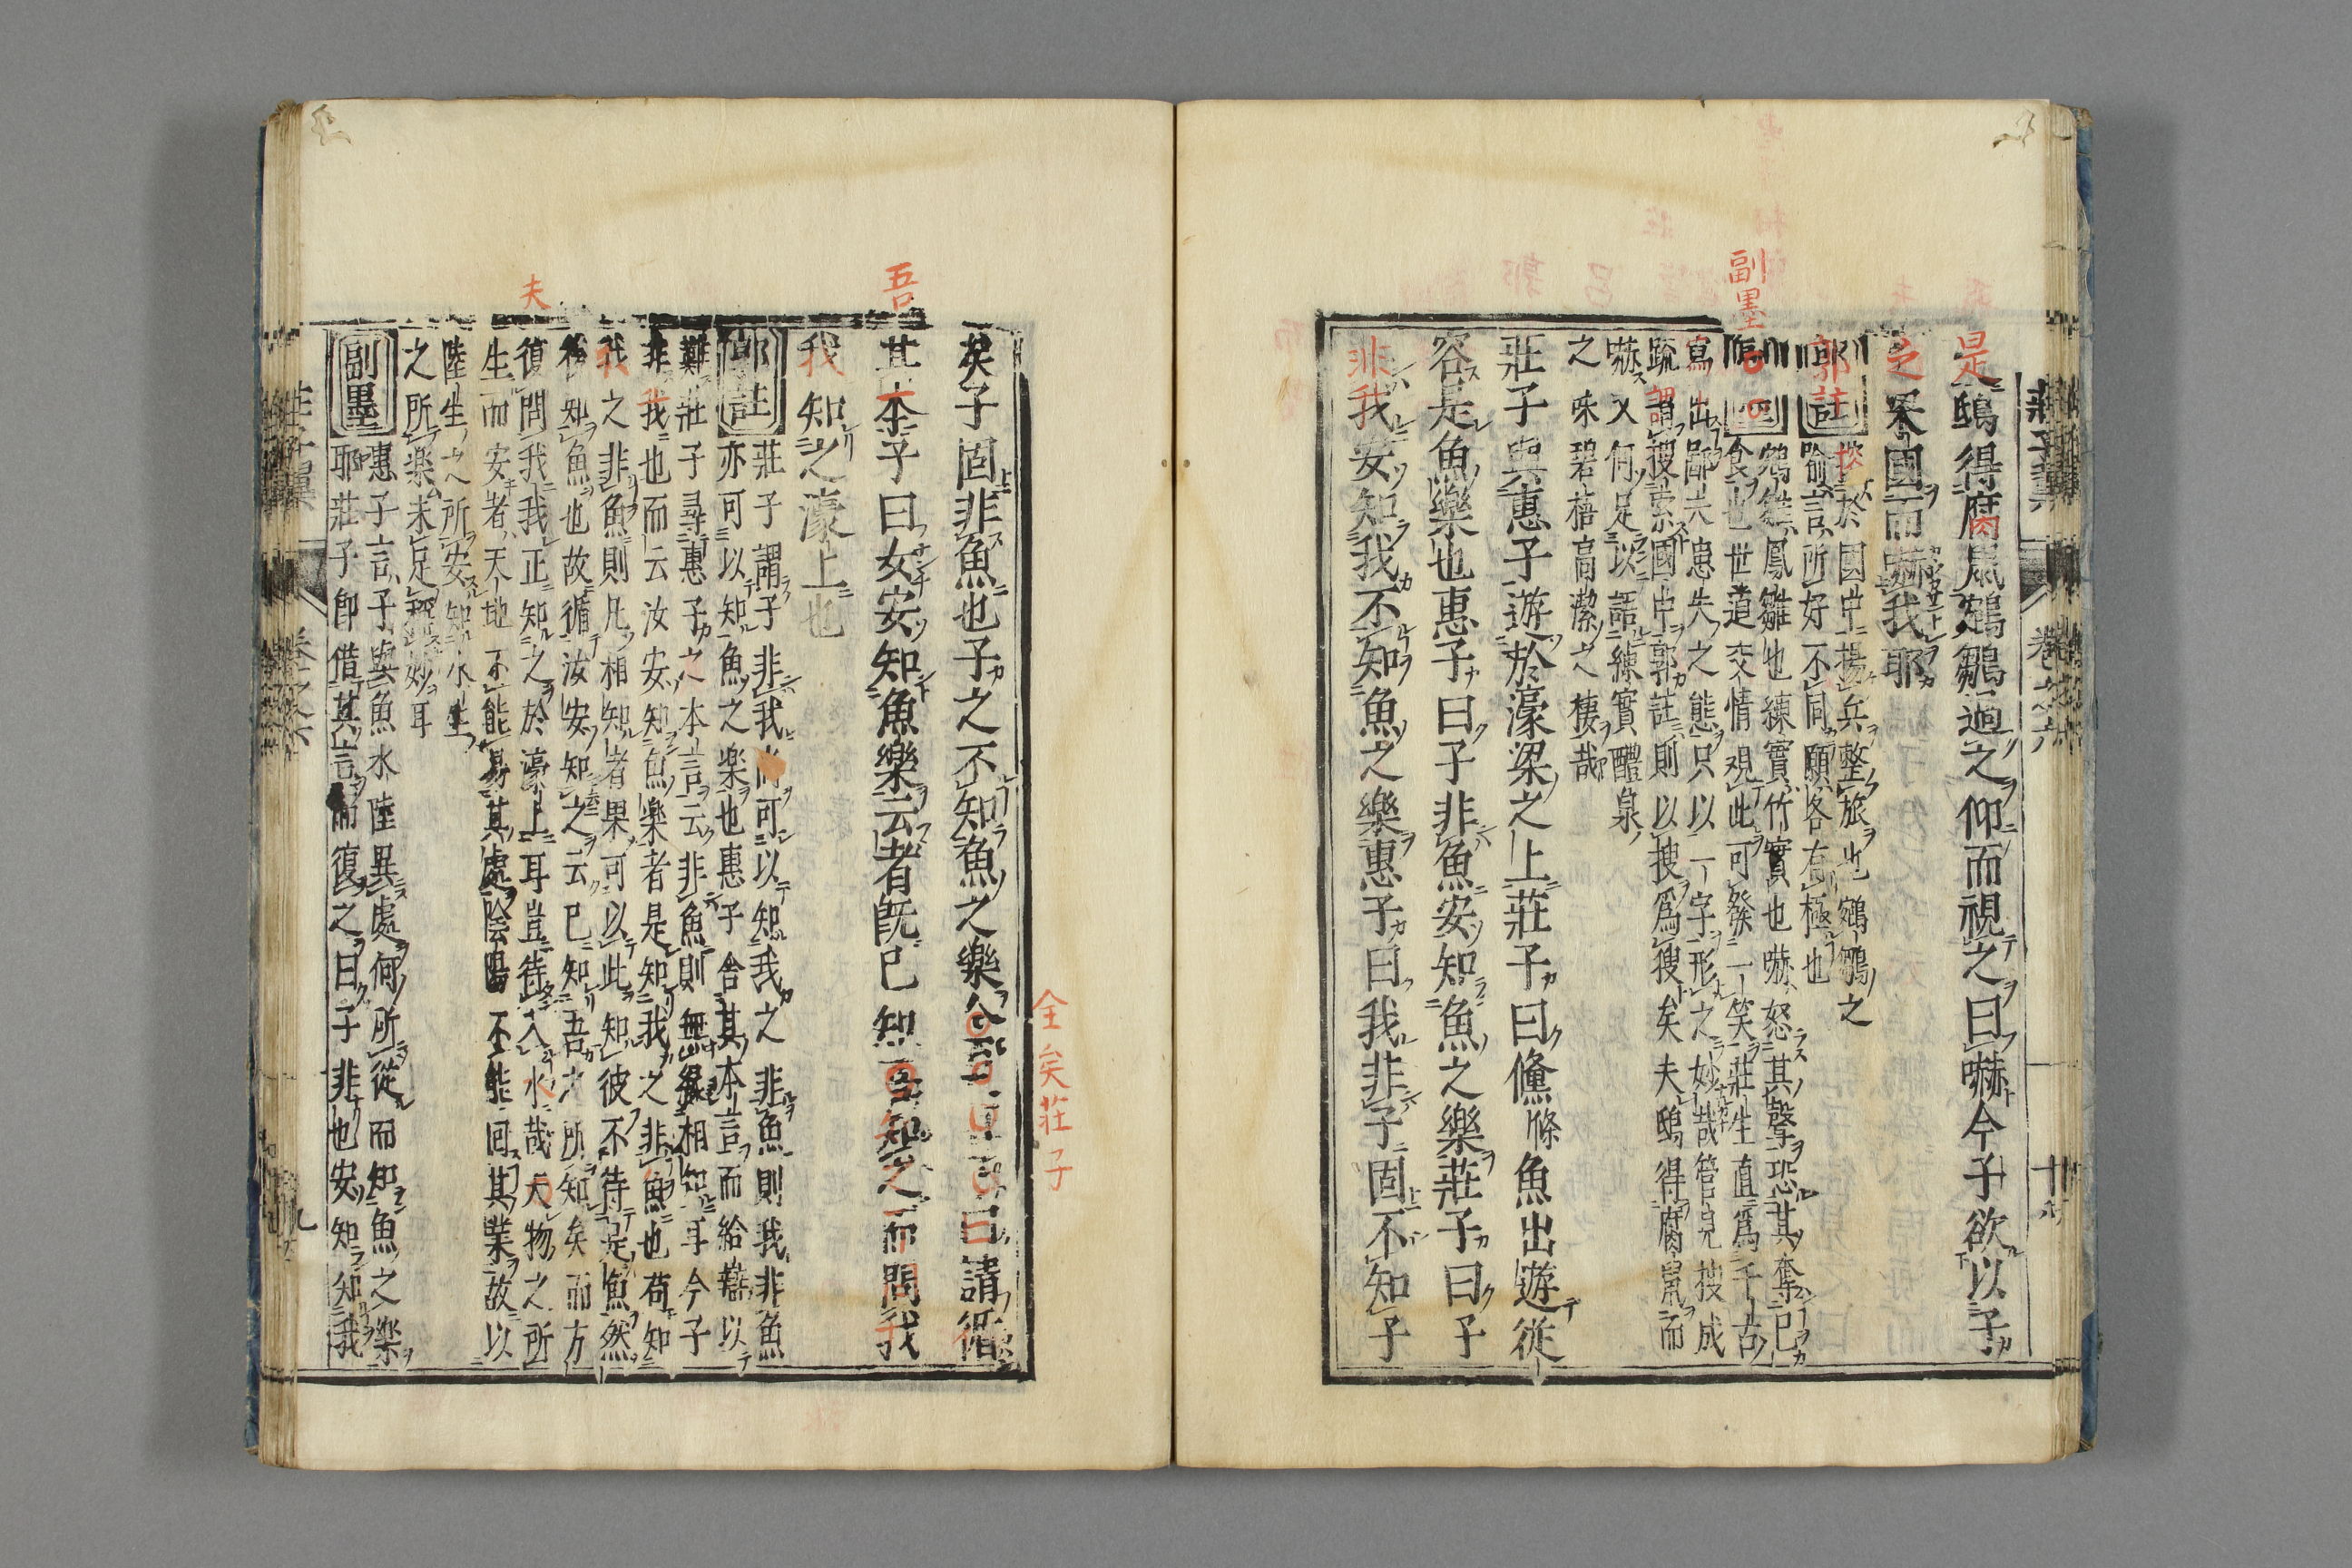 莊子翼
卷之六
是鴟得腐鼠鵷鶵過之仰而視之曰嚇今子欲以子
之梁國而嚇我耶
郭註
揆於國中揚兵整旅也鵷鶵之
喻言所好不同願各有極也
副墨
鵷鶵鳳雛也練實竹實也嚇怒其聲恐其奪己
食也世道交情觀此可發一笑莊生直為千古
寫出鄙夫患失之態只以一字形之妙哉管見搜成
疏謂搜索國中郭註則以搜為獀矣夫鴟得腐鼠而
嚇又何足以語練實醴泉
之味碧梧高潔之棲哉
莊子與惠子遊於濠梁之上莊子曰儵魚出遊從
容是魚樂也惠子曰子非魚安知魚之樂莊子曰子
非我安知我不知魚之樂惠子曰我非子固不知子
矣子固非魚也子之不知魚之樂全矣莊子曰請循
全矣莊子
吾
其本子曰女安知魚樂云者既已知吾知之而問我
我知之濠上也
郭註
莊子謂子非我尚可以知我之非魚則我非魚
亦可以知魚之樂也惠子舍其本言而給辯以
難莊子尋惠子之本言云非魚則無緣相知耳今子
非我也而云汝安知魚樂者是知我之非魚也苟知
我之非魚則凡相知者果可以此知彼不待是魚然
後知魚也故循汝安知之云已知吾之所知矣而方
夫
復問我我正知之於濠上耳豈待入水哉夫物之所
生而安者天地不能易其處陰陽不能回其業故以
陸生之所安知水生
之所樂未足稱妙耳
副墨
惠子言子與魚水陸異處何所從而知魚之樂
耶莊子即借其言而復之曰子非我也安知知我